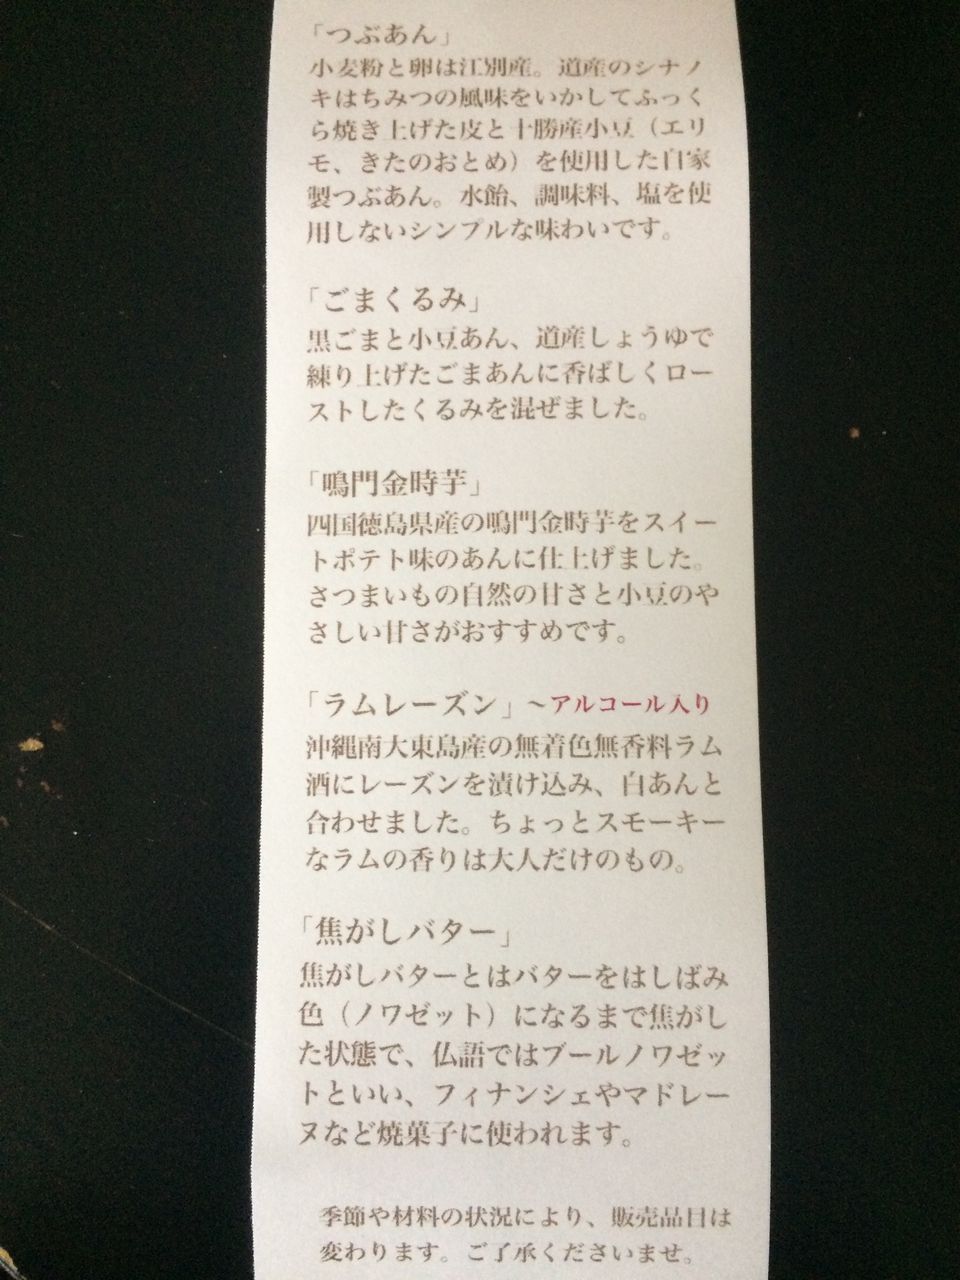 「つぶあん」
小麦粉と卵は江別産。道産のシナノ
キはちみつの風味をいかしてふっく
ら焼き上げた皮と十勝産小豆（エリ
モ、きたのおとめ）を使用した自家
製つぶあん。水飴、調味料、塩を使
用しないシンプルな味わいです。
「ごまくるみ」
黒ごまと小豆あん、道産しょうゆで
練り上げたごまあんに香ばしくロー
ストしたくるみを混ぜました。
「鳴門金時芋」
四国徳島県産の鳴門金時芋をスイー
トポテト味のあんに仕上げました。
さつまいもの自然の甘さと小豆のや
さしい甘さがおすすめです。
「ラムレーズン」～アルコール入り
沖縄南大東島産の無着色無香料ラム
酒にレーズンを漬け込み、白あんと
合わせました。ちょっとスモーキー
なラムの香りは大人だけのもの。
「焦がしバター」
焦がしバターとはバターをはしばみ
色（ノワゼット）になるまで焦がし
た状態で、仏語ではブールノワゼッ
トといい、フィナンシェやマドレー
ヌなど焼菓子に使われます。
季節や材料の状況により、販売品目は
変わります。ご了承くださいませ。